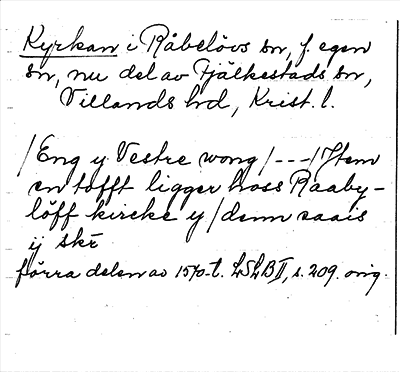 Kyrkan i Råbelövs sn, f. egen
sn, nu del av Fjälkestads sn,
Villands hrd, Krist. l.
/Eng y Vestre wong/---/Jtem
en tofft ligger hoss Raaby-
löff kircke y/denn saais
ij skr
förra delen av 1570-t. LSLB II, s. 209. orig.